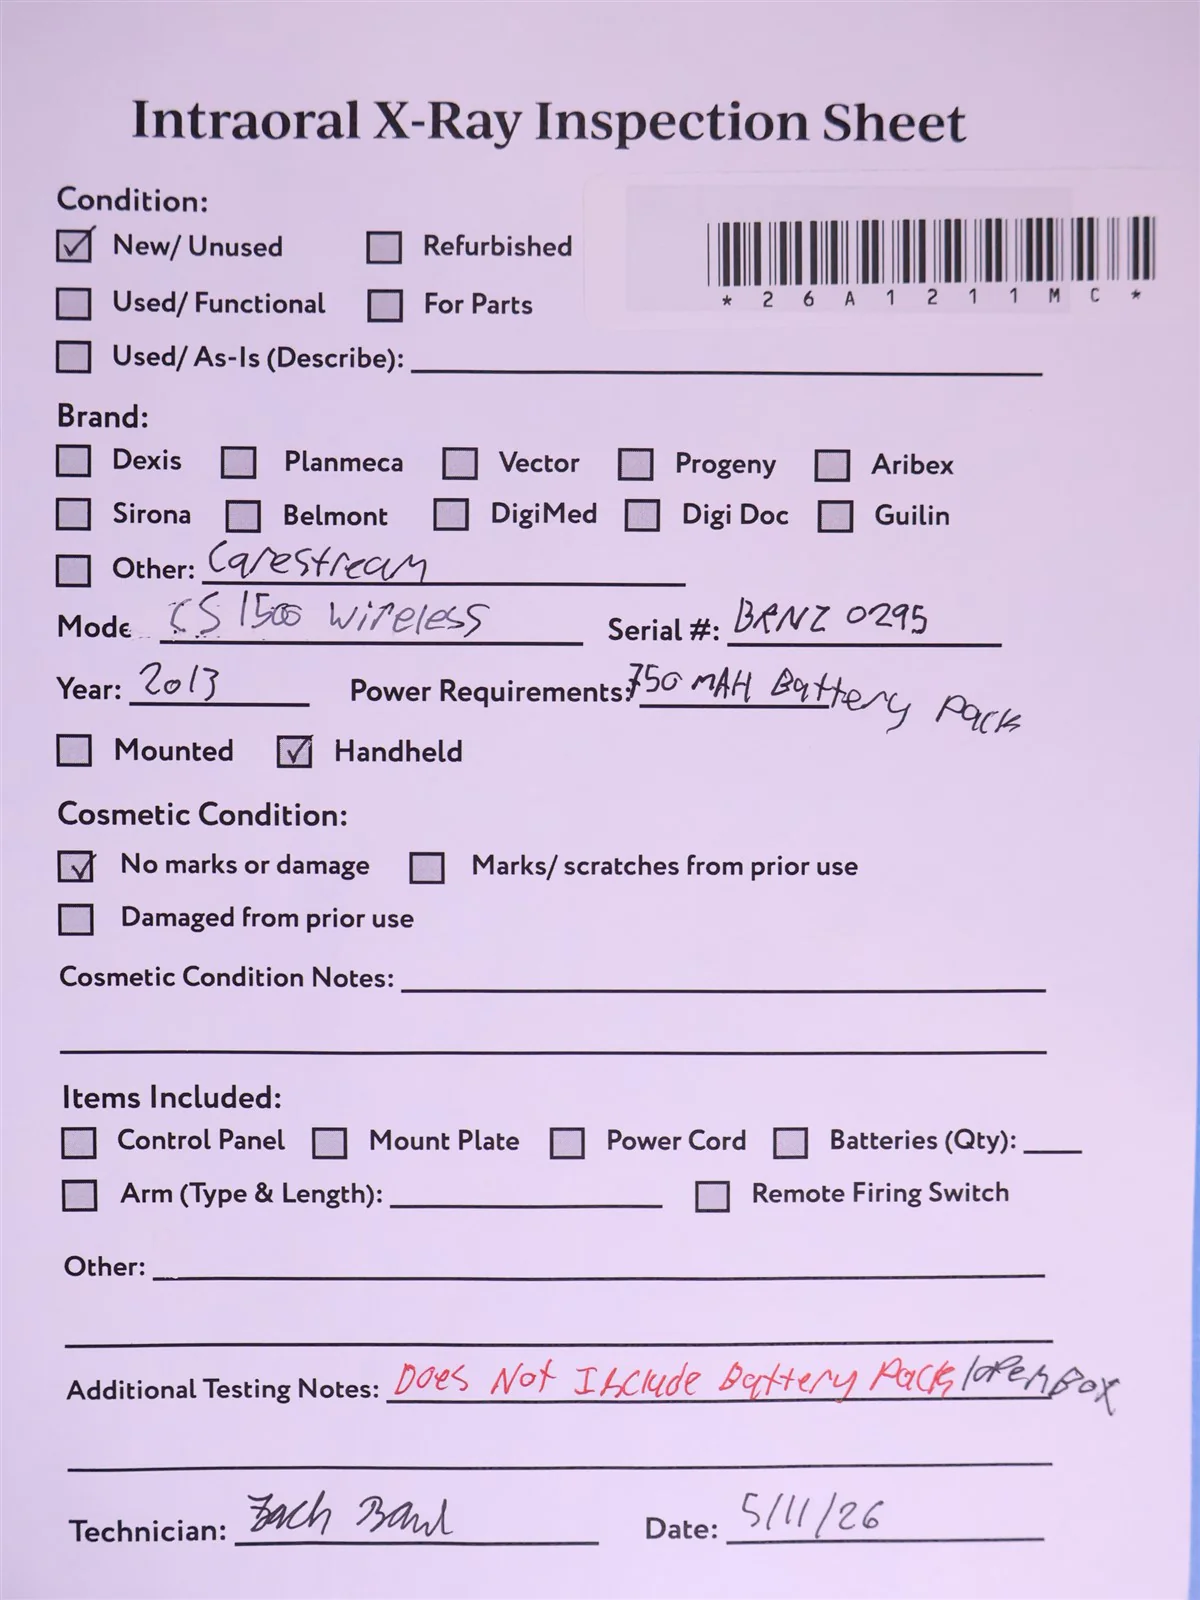 Intraoral X-Ray Inspection Sheet
Condition:
New/ Unused Refurbished
*26A1211MC*
Used/ Functional For Parts
Used/ As-Is (Describe):
Brand:
Dexis Planmeca Vector Progeny Aribex
Sirona Belmont DigiMed Digi Doc Guilin
Other: Carestream
Mode CS 1500 Wireless Serial #: BRNZ 0295
Year: 2013 Power Requirements: 750 mAH Battery Pack
Mounted Handheld
Cosmetic Condition:
No marks or damage Marks/ scratches from prior use
Damaged from prior use
Cosmetic Condition Notes:
Items Included:
Control Panel Mount Plate Power Cord Batteries (Qty):
Arm (Type & Length): Remote Firing Switch
Other:
Additional Testing Notes: Does Not Include Battery Pack/open Box
Technician: Zach Date: 5/11/26